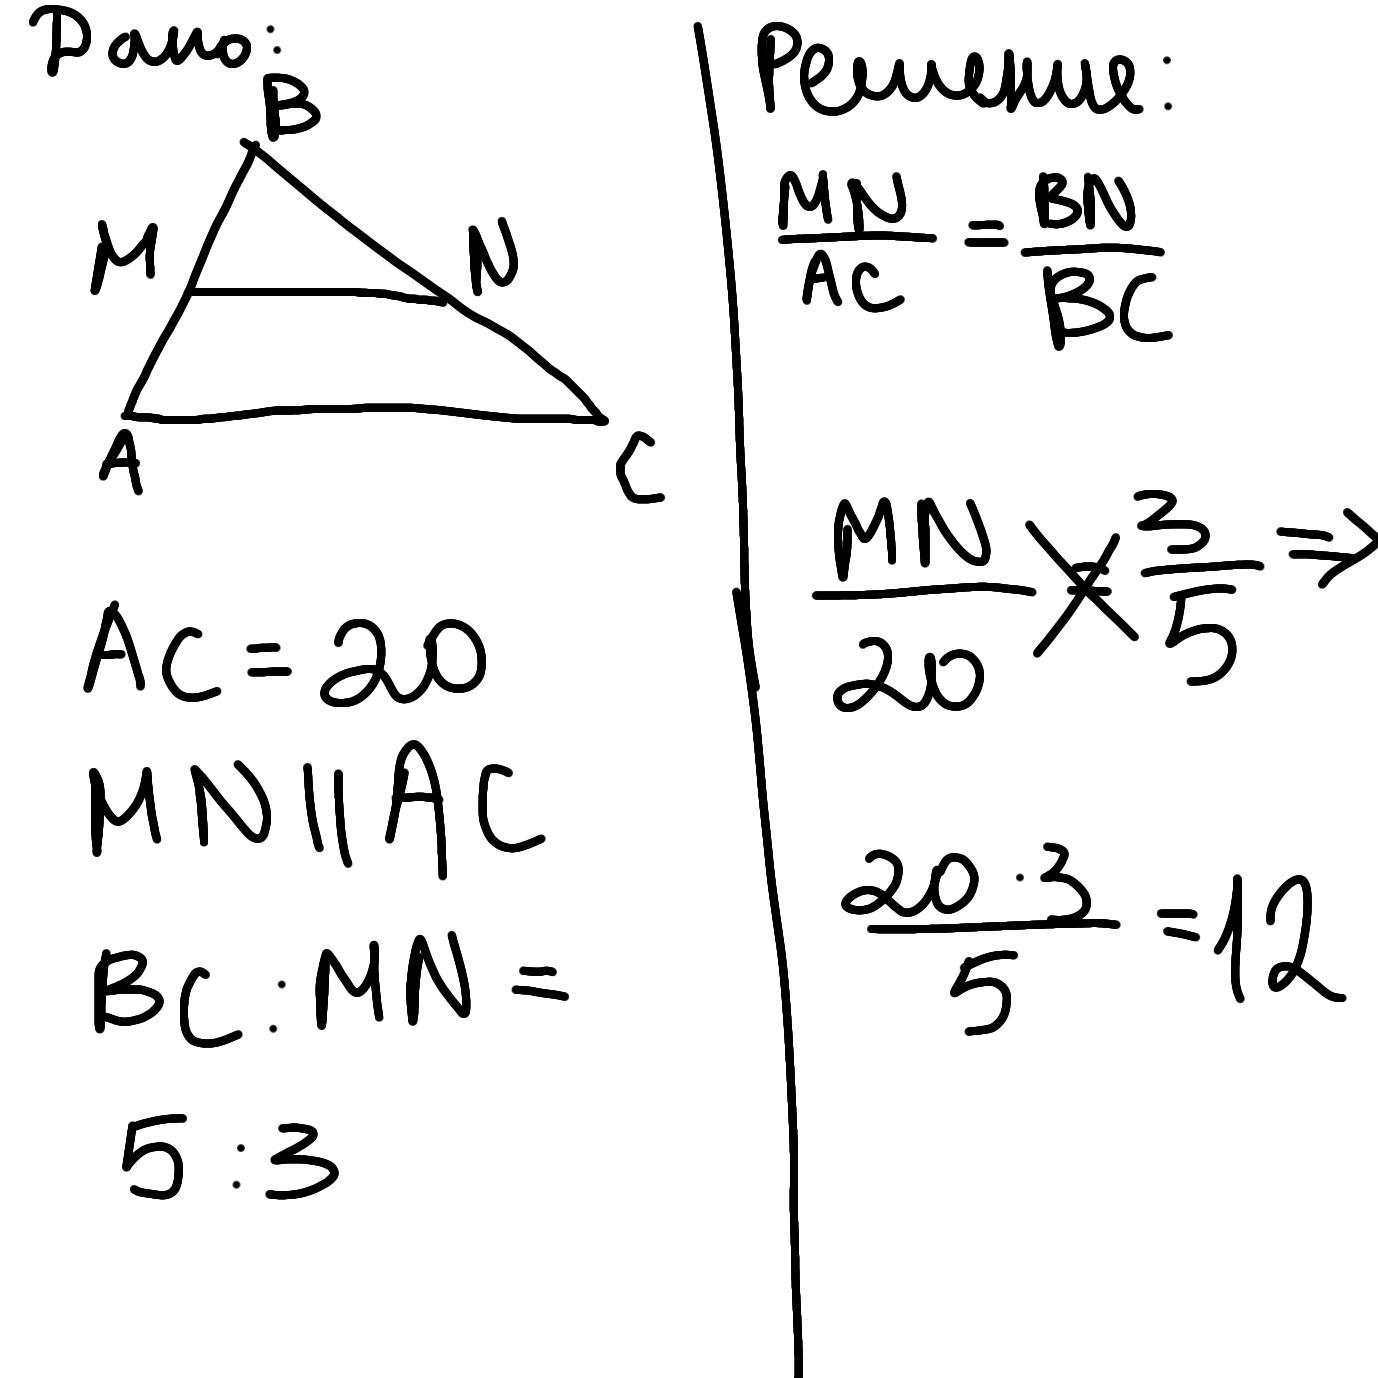 Дано:
B
M N
A C
AC = 20
MN || AC
BC : MN =
5 : 3
Решение:
MN/AC = BN/BC
MN/20 = 3/5 ⇒
20 · 3/5 = 12